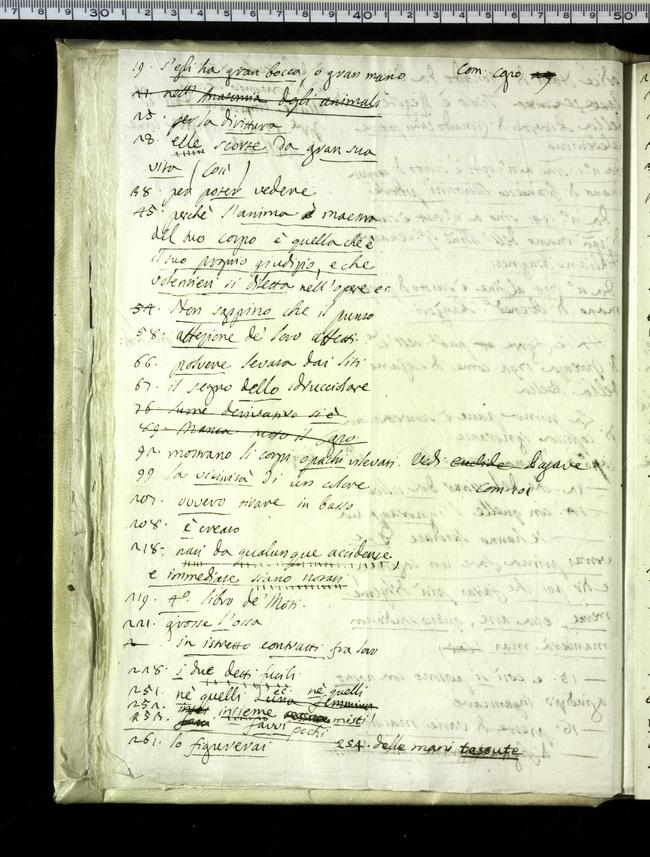 19. s'egli ha gran bocca, o gran mano com. capo 19
nell' degli animali
25. per la dirittura
28. elle scorse da gran sua
vita (così)
38. per poter vedere
45. perchè l'anima è maestra
del suo corpo è quella che è
il suo proprio giudizio, e che
volentieri si diletta nell'opere ec
54. Non sappino che il punto
58. attezione de' loro affetti.
66. polvere levata dai siti
67. il segno dello sdrucciolare
76 lume derivativo si è
89. Manca tutto il capo.
92. mostrano li corpi opachi rilevati. Vedi euclide
99 la vicinità di un colore
207. ovvero tirare in basso
208. è creato
218. nati da qualunque accidente,
e immediate siano notati
219. 4º. libro de' Moti.
221. grosse l'ossa
in istretto contratti fra loro
228. i due detti fucili
251. nè quelli d'una ec nè quelli femmina
252. insieme misti!
253. favvi pochi
261. lo figurerai 254. delle mani tessute